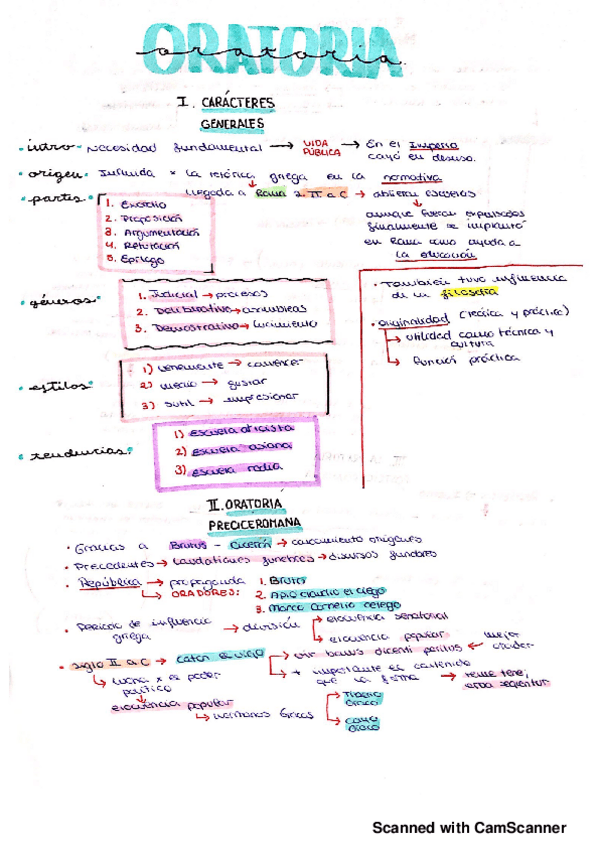 ORATORIA
oratoria
I. CARÁCTERES
GENERALES
• intro - Necesidad fundamental → VIDA PÚBLICA → En el Imperio
cayó en desuso.
• origen: Influida x la retórica griega en la normativa
llegada a Roma s. II a.C → abrieron escuelas
aunque fueran expulsados
finalmente se implantó
en Roma como ayuda a
la educación
• partes
1. Exordio
2. Proposición
3. Argumentación
4. Refutación
5. Epílogo
• También tuvo influencia
de la filosofía
• originalidad (teórica y práctica)
→ utilidad como técnica y
cultura
→ función práctica
• géneros
1. Judicial → procesos
2. Deliberativo → asambleas
3. Demostrativo → lucimiento
• estilos
1) vehemente → convencer
2) medio → gustar
3) sutil → impresionar
• tendencias
1) escuela aticista
2) escuela asiana
3) escuela rodia
II. ORATORIA
PRECICEROMANA
• Gracias a Brutus - Cicerón → conocimiento orígenes
• Precedentes → laudationes funebres → discursos fúnebres
• República → propaganda
→ ORADORES:
1. Bruto
2. Apio Claudio el ciego
3. Marco Cornelio Cetego
• Periodo de influencia
griega
→ división
→ elocuencia senatorial
→ elocuencia popular
• siglo II a.C → Catón el viejo → vir bonus dicendi peritus ← mejor
orador
→ + importante es contenido
que la forma → reme tene,
erba seqentur
→ lucha x el poder
político
elocuencia popular
→ hermanos Gracos
→ Tiberio
Graco
→ Cayo
Graco
Scanned with CamScanner